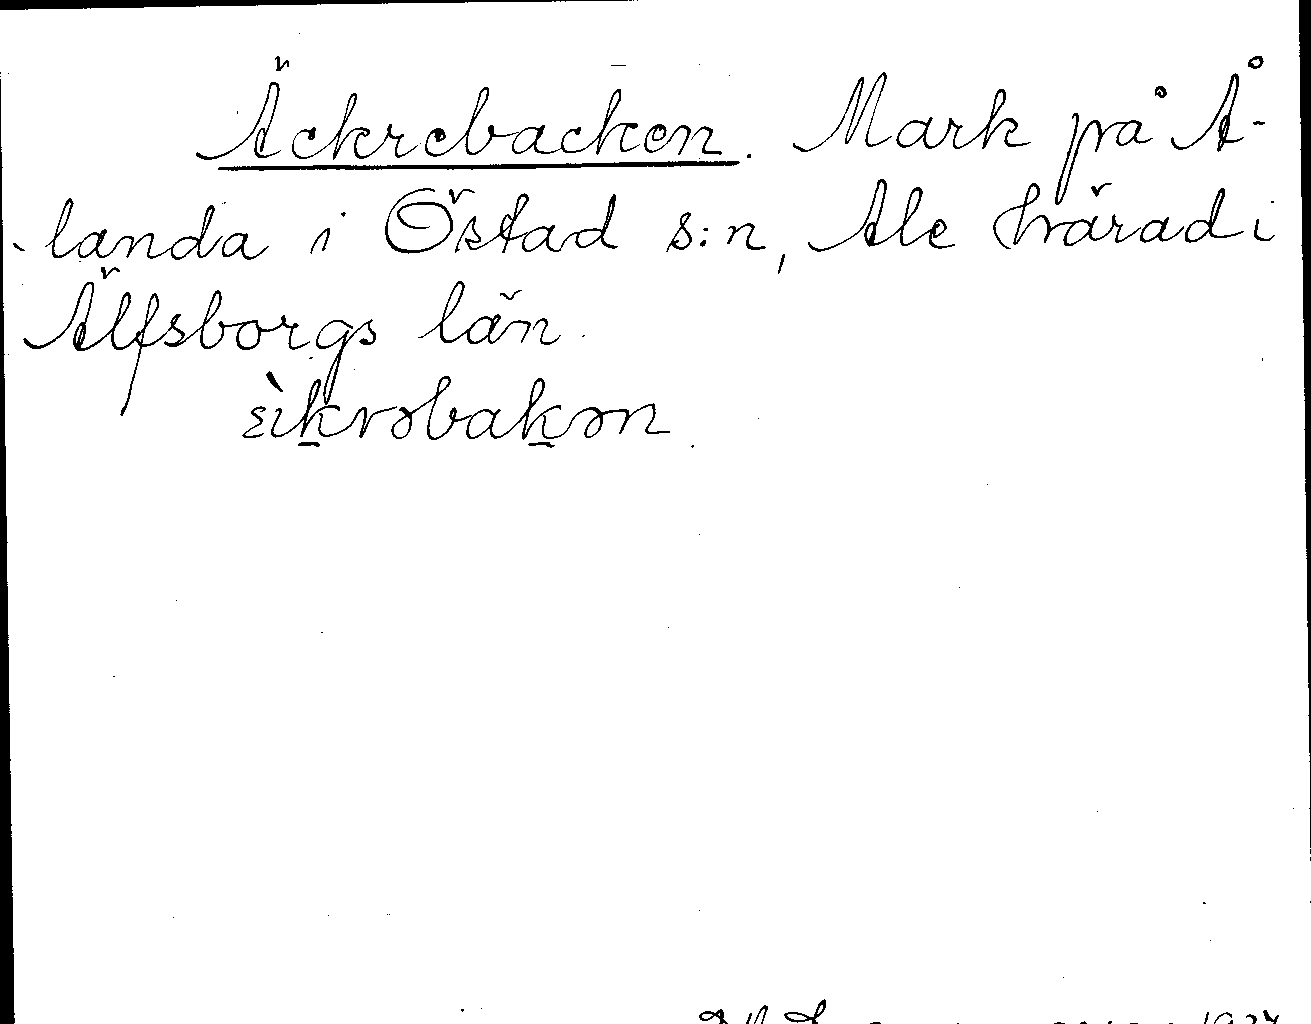 Äckrebacken. Mark på Å-
landa i Östad s:n, Ale härad i
Älfsborgs län.
ὲikrəbakən